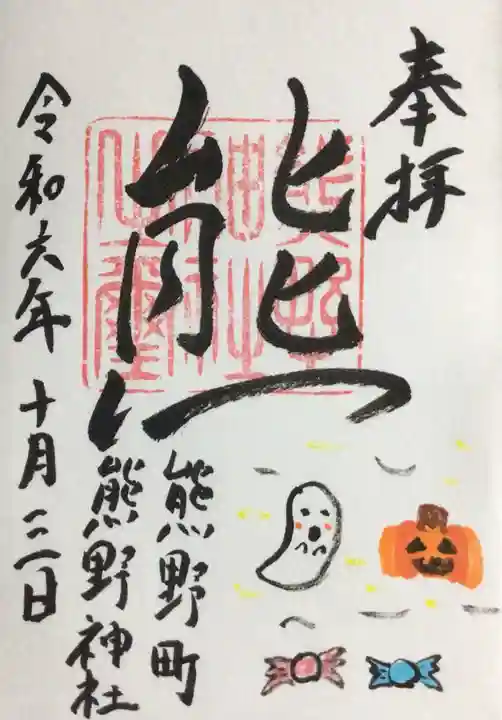 奉拝
熊
熊野町
熊野神社
令和六年十月三日